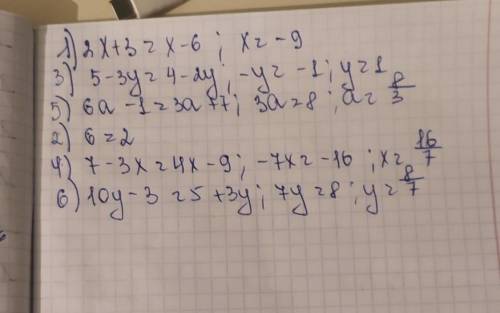 1) 2x+3=x-6; x=-9
3) 5-3y=4-2y; -y=-1; y=1
5) 6a-1=3a+7; 3a=8; a=8/3
2) 6=2
4) 7-3x=4x-9; -7x=-16; x=16/7
6) 10y-3=5+3y; 7y=8; y=8/7